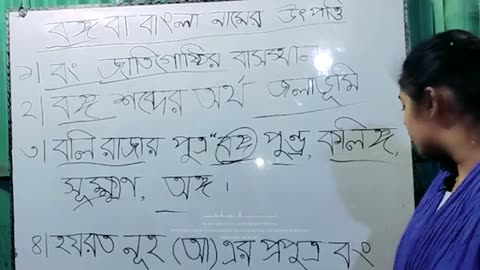 বঙ্গ বা বাংলা নামের উৎপত্তি
১। বং জাতিগোষ্ঠির বাসস্থান
২। বঙ্গ শব্দের অর্থ জলাভূমি
৩। বলি রাজার পুত্র "বঙ্গ পুন্ড্র, কলিঙ্গ,
সূক্ষ্মণ, অঙ্গ।
৪। হযরত নূহ (আ) এর প্রপুত্র বং